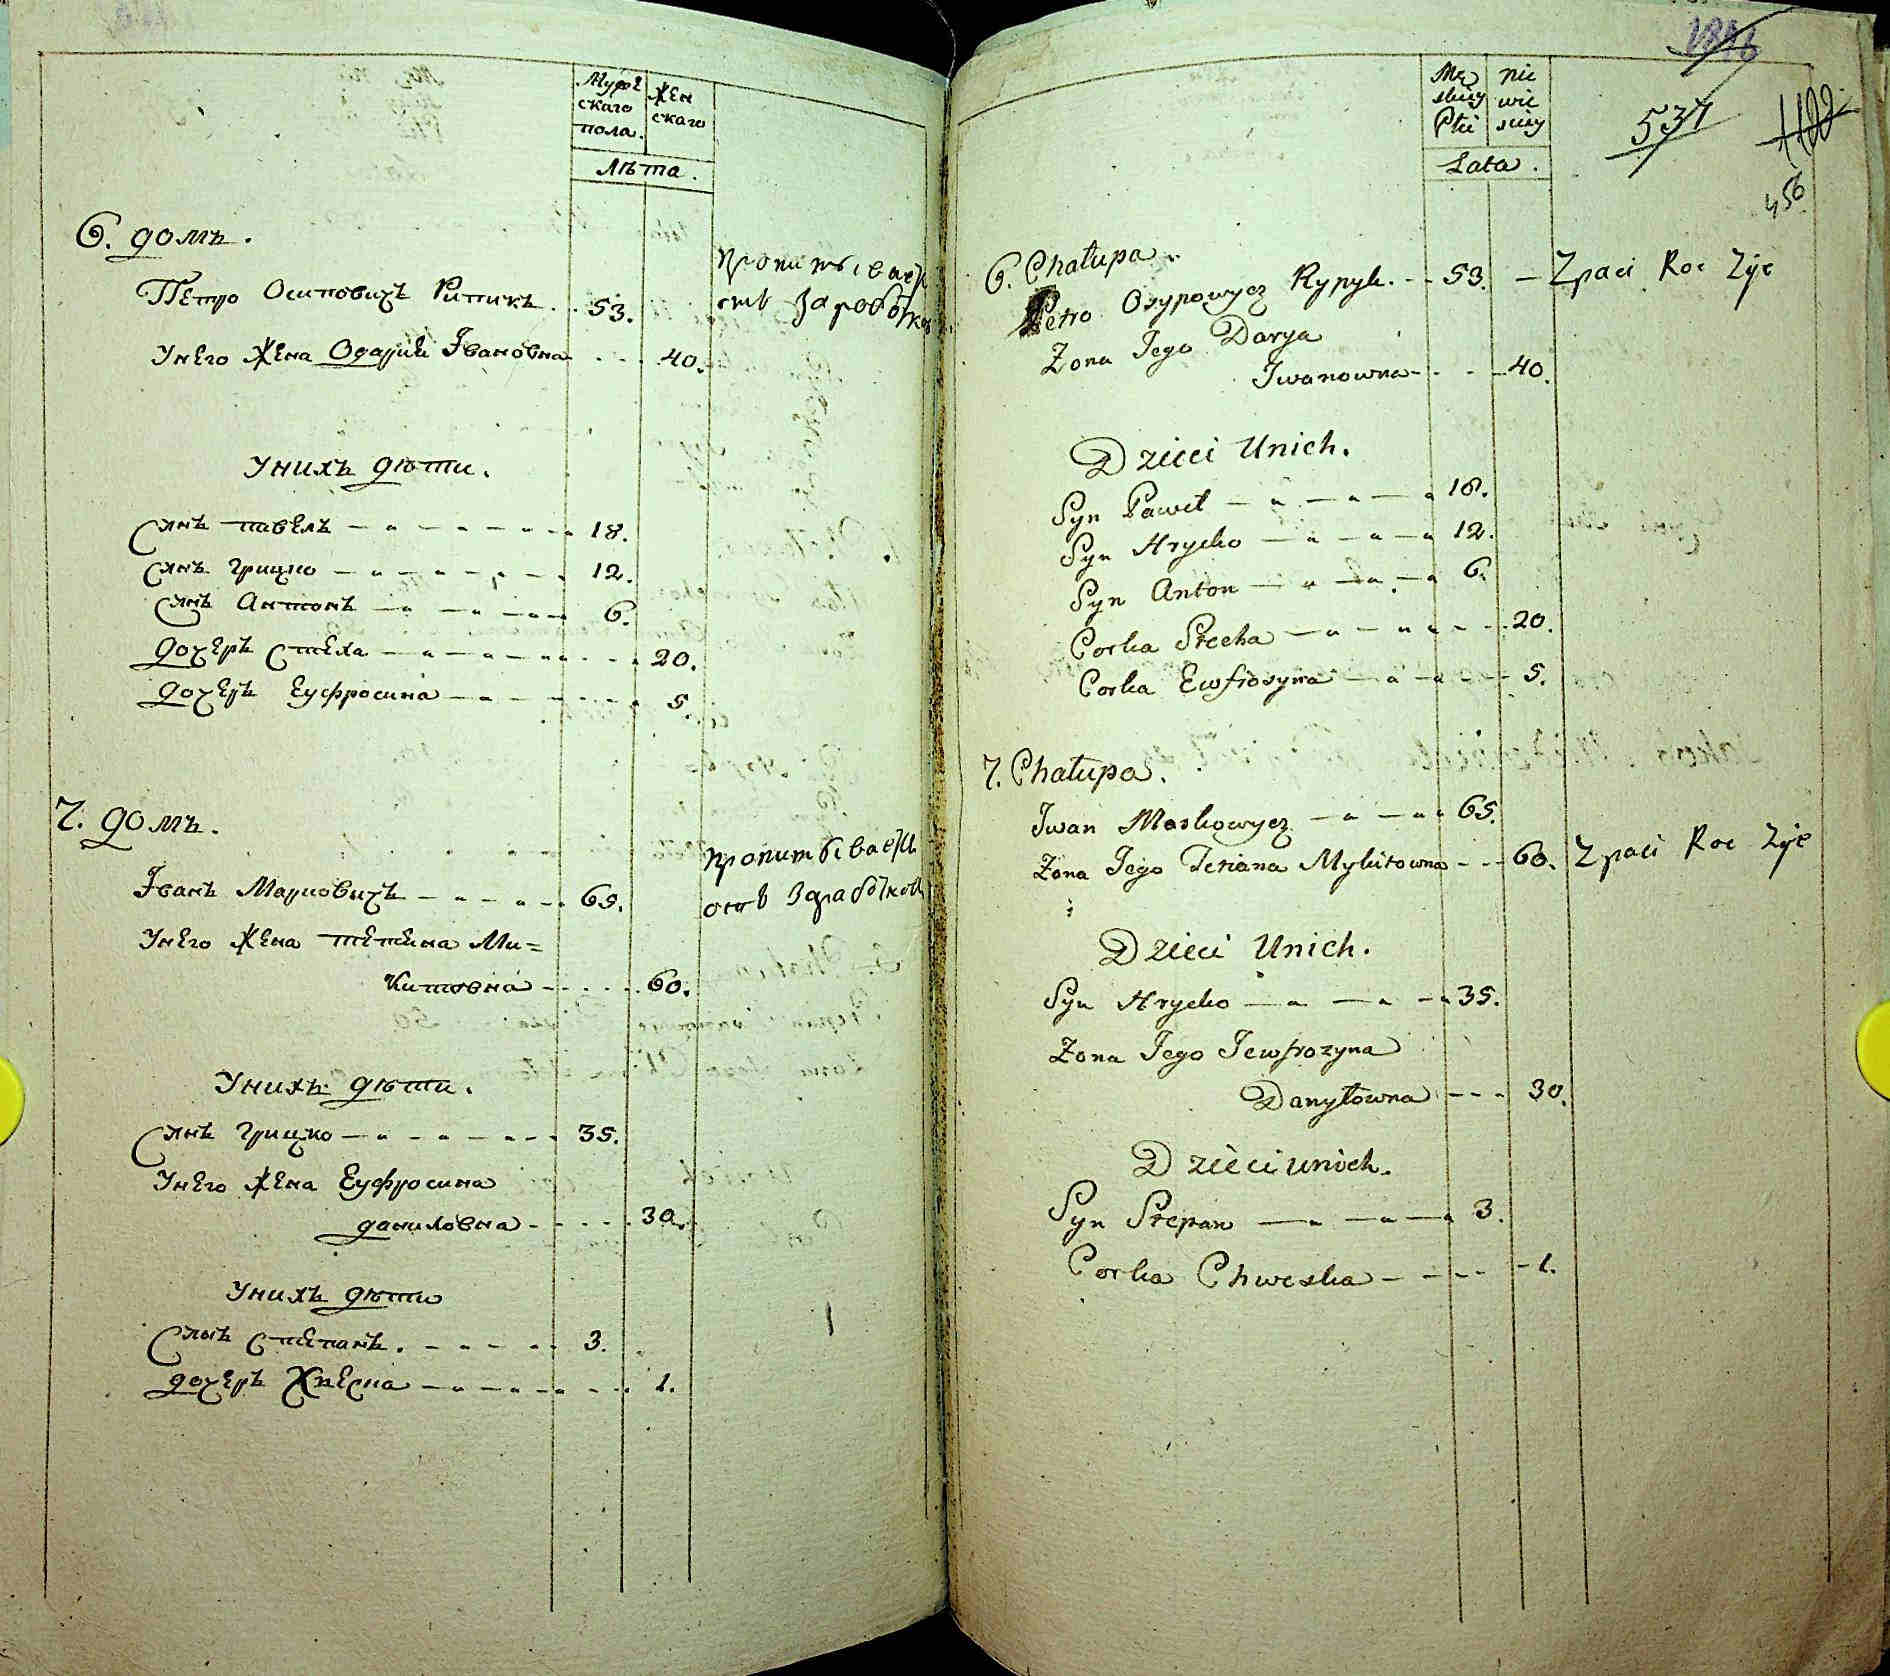 Мужe
скаго
пола.
Жен
скаго
Лѣта.
6. домъ.
Петро Осиповичъ Рипикъ 53.
пропитываетъ
ся заработком
Унего жена Одария Iвановна 40.
Унихъ дѣти.
Сынъ павелъ 18.
Сынъ грицко 12.
Сынъ Антонъ 6.
дочеръ Стеха 20.
дочеръ Еуфросина 5.
7. домъ.
Iванъ Марковичъ 65.
пропитываетъ
отъ заработков
Унего жена тетяна Ми=
китовна 60.
Унихъ дѣти.
Сынъ грицко 35.
Унего жена Еуфросина
даниловна 30.
Унихъ дѣти
Сынъ Степанъ. 3.
дочеръ Хвеска 1.
1816
537
1122
456
Mę
skiey
Płci
nie
wie
sciey
Lata.
6. Chałupa.
Petro Osypowycz Rypyk. 53. Zpaci Roc Żyie
Zona Jego Darya
Jwanowna 40.
Dzieci Unich.
Syn Paweł 18.
Syn Hrycko 12.
Syn Anton 6.
Corka Stecha 20.
Corka Ewfrosyna 5.
7. Chałupa.
Jwan Markowycz 65.
Zona Jego Tetiana Mykitowna 60. Zpaci Roc Żyie
Dzieci Unich.
Syn Hrycko 35.
Zona Jego Jewfrozyna
Danyłowna 30.
Dzieci unich.
Syn Stepan 3.
Corka Chweska 1.